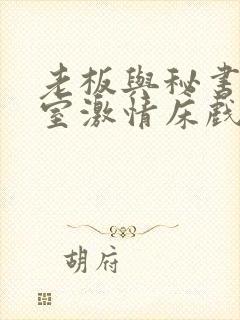 老板與秘書
室激情床戲
胡府